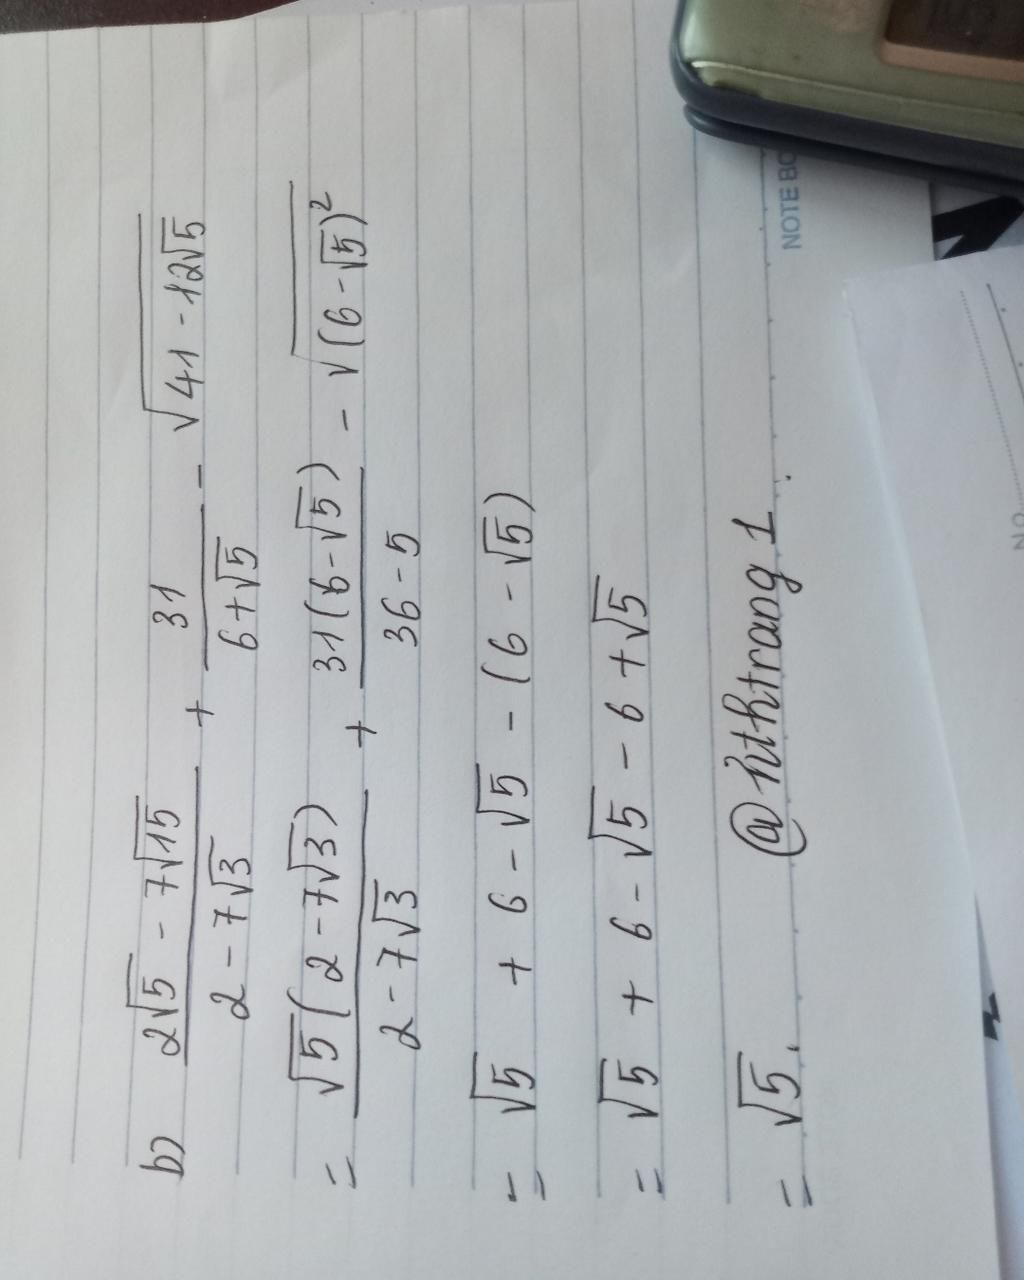 b) \frac{2\sqrt{5} - 7\sqrt{15}}{2 - 7\sqrt{3}} + \frac{31}{6 + \sqrt{5}} - \sqrt{41 - 12\sqrt{5}}
= \frac{\sqrt{5}(2 - 7\sqrt{3})}{2 - 7\sqrt{3}} + \frac{31(6 - \sqrt{5})}{36 - 5} - \sqrt{(6 - \sqrt{5})^2}
= \sqrt{5} + 6 - \sqrt{5} - (6 - \sqrt{5})
= \sqrt{5} + 6 - \sqrt{5} - 6 + \sqrt{5}
= \sqrt{5}. @hthtrang1.
NOTE BO
NO